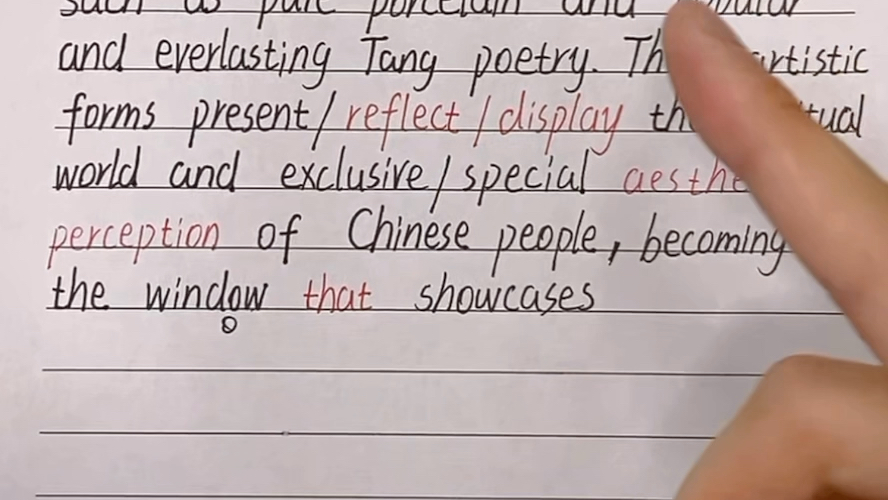 such as pure porcelain and
and everlasting Tang poetry. artistic
forms present/reflect/display
world and exclusive/special
perception of Chinese people, becoming
the window that showcases